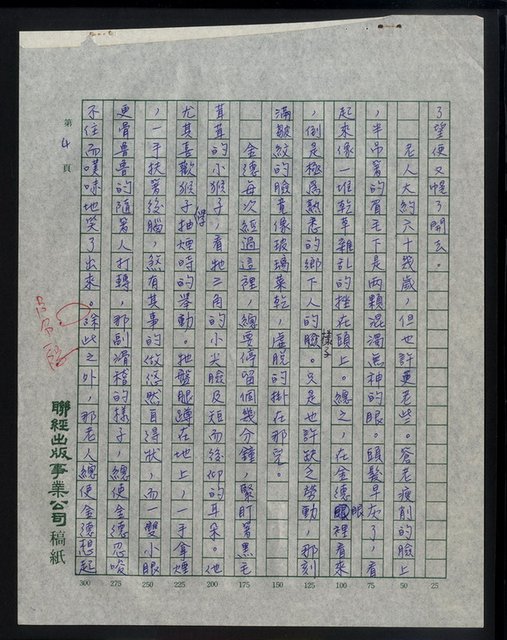 了望便又慢了開去。
老人大約六十幾歲，但也許更老些。蒼老瘦削的臉上
，半吊著的眉毛下是兩顆混濁無神的眼。頭髮早灰了，看
起來像一堆乾草雜亂的挂在頭上。總之，在金德眼裡看來
，倒是極為熟悉的鄉下人的臉樣子。只是也許缺乏勞動，那刻
滿皺紋的臉竟像玻璃菜乾，虛脫的掛在那兒。
金德每次經過這裡，總要停留個幾分鐘，緊盯著黑毛
茸茸的小猴子，看牠三角的小尖臉及短而後仰的耳朵。他
尤其喜歡猴子學抽煙時的舉動。牠盤腿蹲在地上，一手拿煙
，一手扶著後腦，煞有其事的做悠然自得狀，而一雙小眼
更骨魯魯的隨著人打轉，那副滑稽的樣子，總使金德忍唆
不住而噗哧地笑了出來。除此之外，那老人總使金德想起
第4頁
聯經出版事業公司稿紙
25
50
75
100
125
150
175
200
225
250
275
300